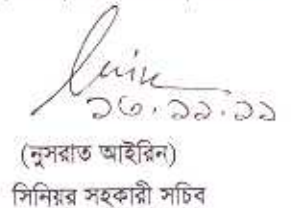 ১৩.১১.১১
(নুসরাত আইরিন)
সিনিয়র সহকারী সচিব